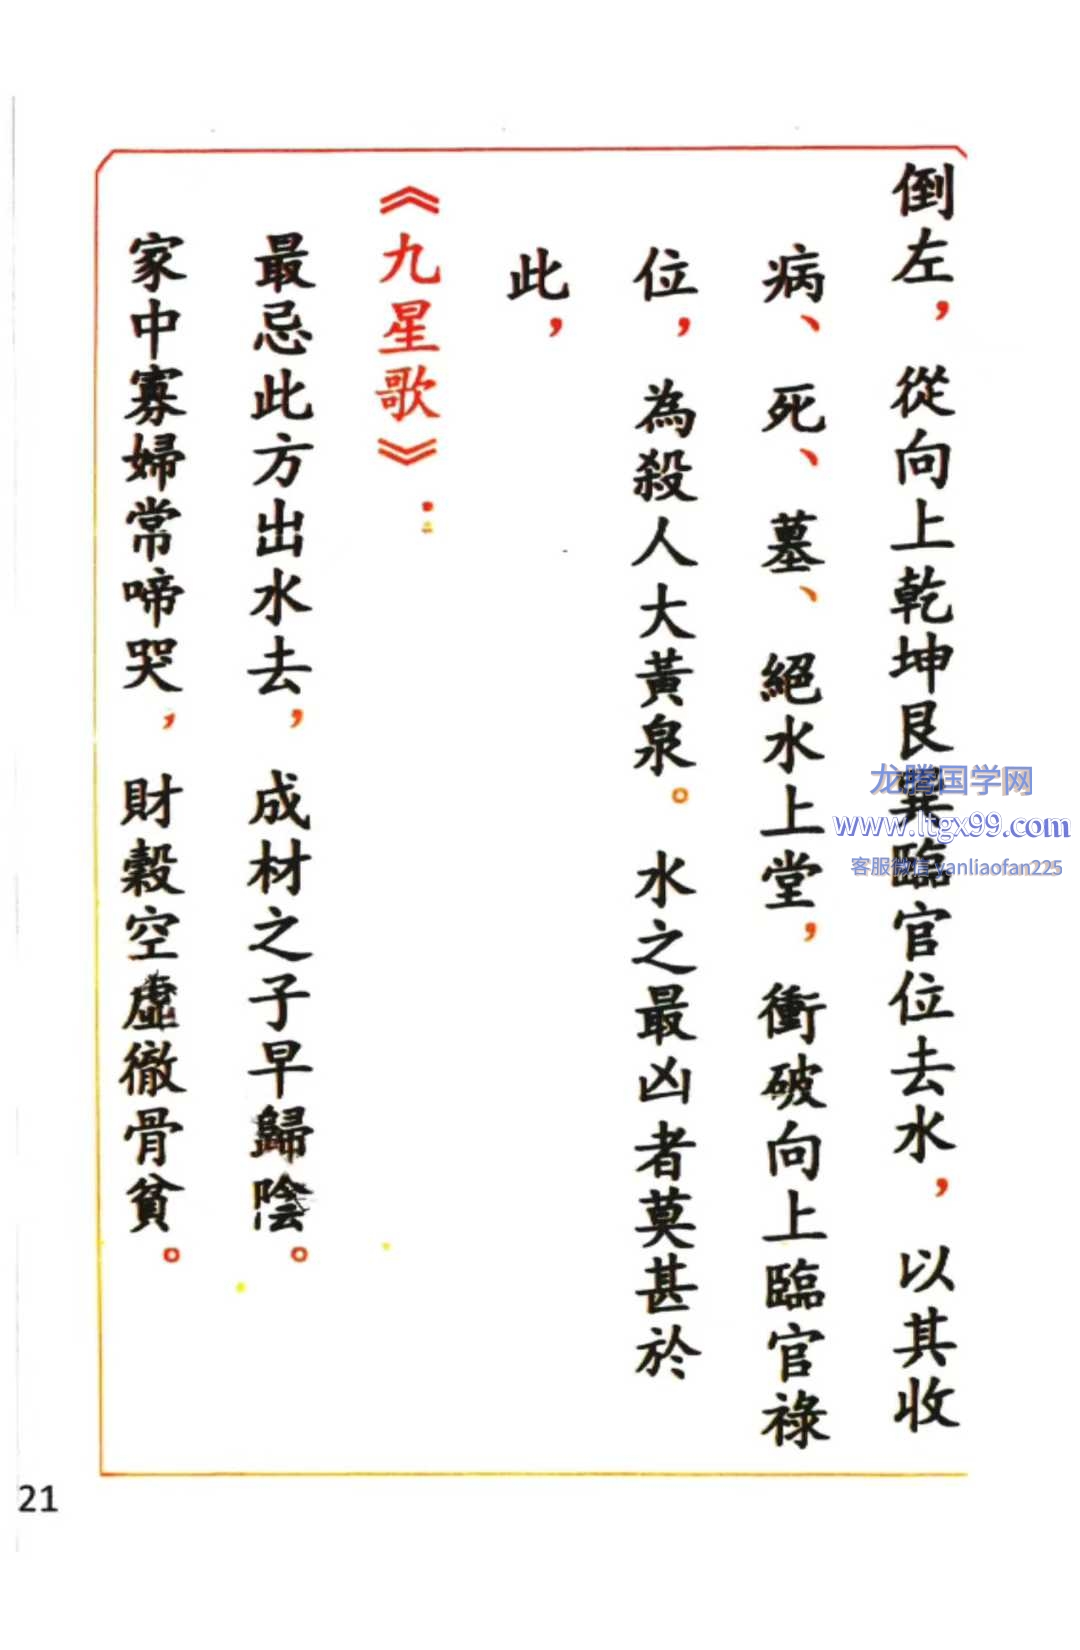 倒左，從向上乾坤艮巽臨官位去水，以其收
病、死、墓、絕水上堂，衝破向上臨官祿
位，為殺人大黃泉。水之最凶者莫甚於
此，
《九星歌》：
最忌此方出水去，成材之子早歸陰。
家中寡婦常啼哭，財穀空虛徹骨貧。
21
龙腾国学网
www.ltgx99.com
客服微信 yanliaofan225